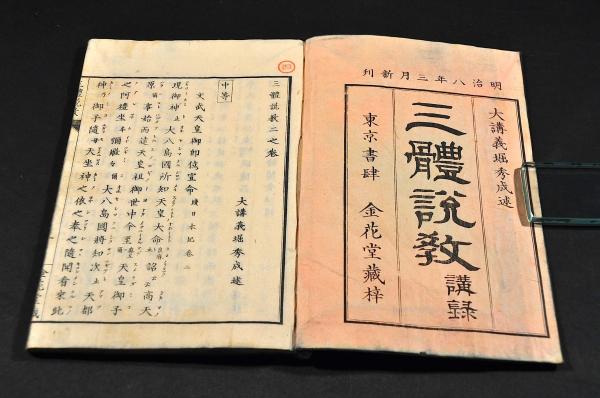 明治八年三月新刊
大講義堀秀成述
三體說教講録
東京書肆 金花堂藏梓
三體說教二之卷
大講義堀秀成述
中等
文武天皇御即位宣命 續日本記卷二
現御神止大八島國所知天皇大命詔云高天
原爾事始而遠天皇祖御世中今至天皇御子
之阿禮坐牟彌繼大八島國將知次止天都
神乃御子隨母天坐神之依之奉之隨聞看來此